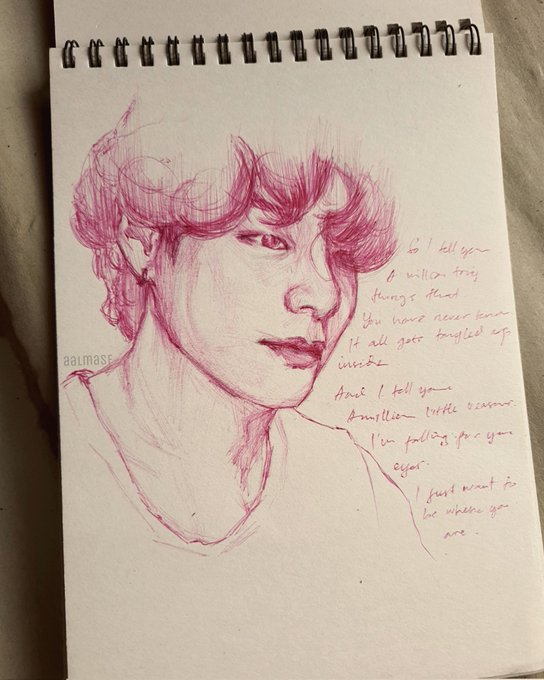 So I tell you
A million tiny
things that
You have never known
It all gets tangled up
inside
And I tell you
A million little reasons
I'm falling for your
eyes.
I just want to
be where you
are.
aalmase